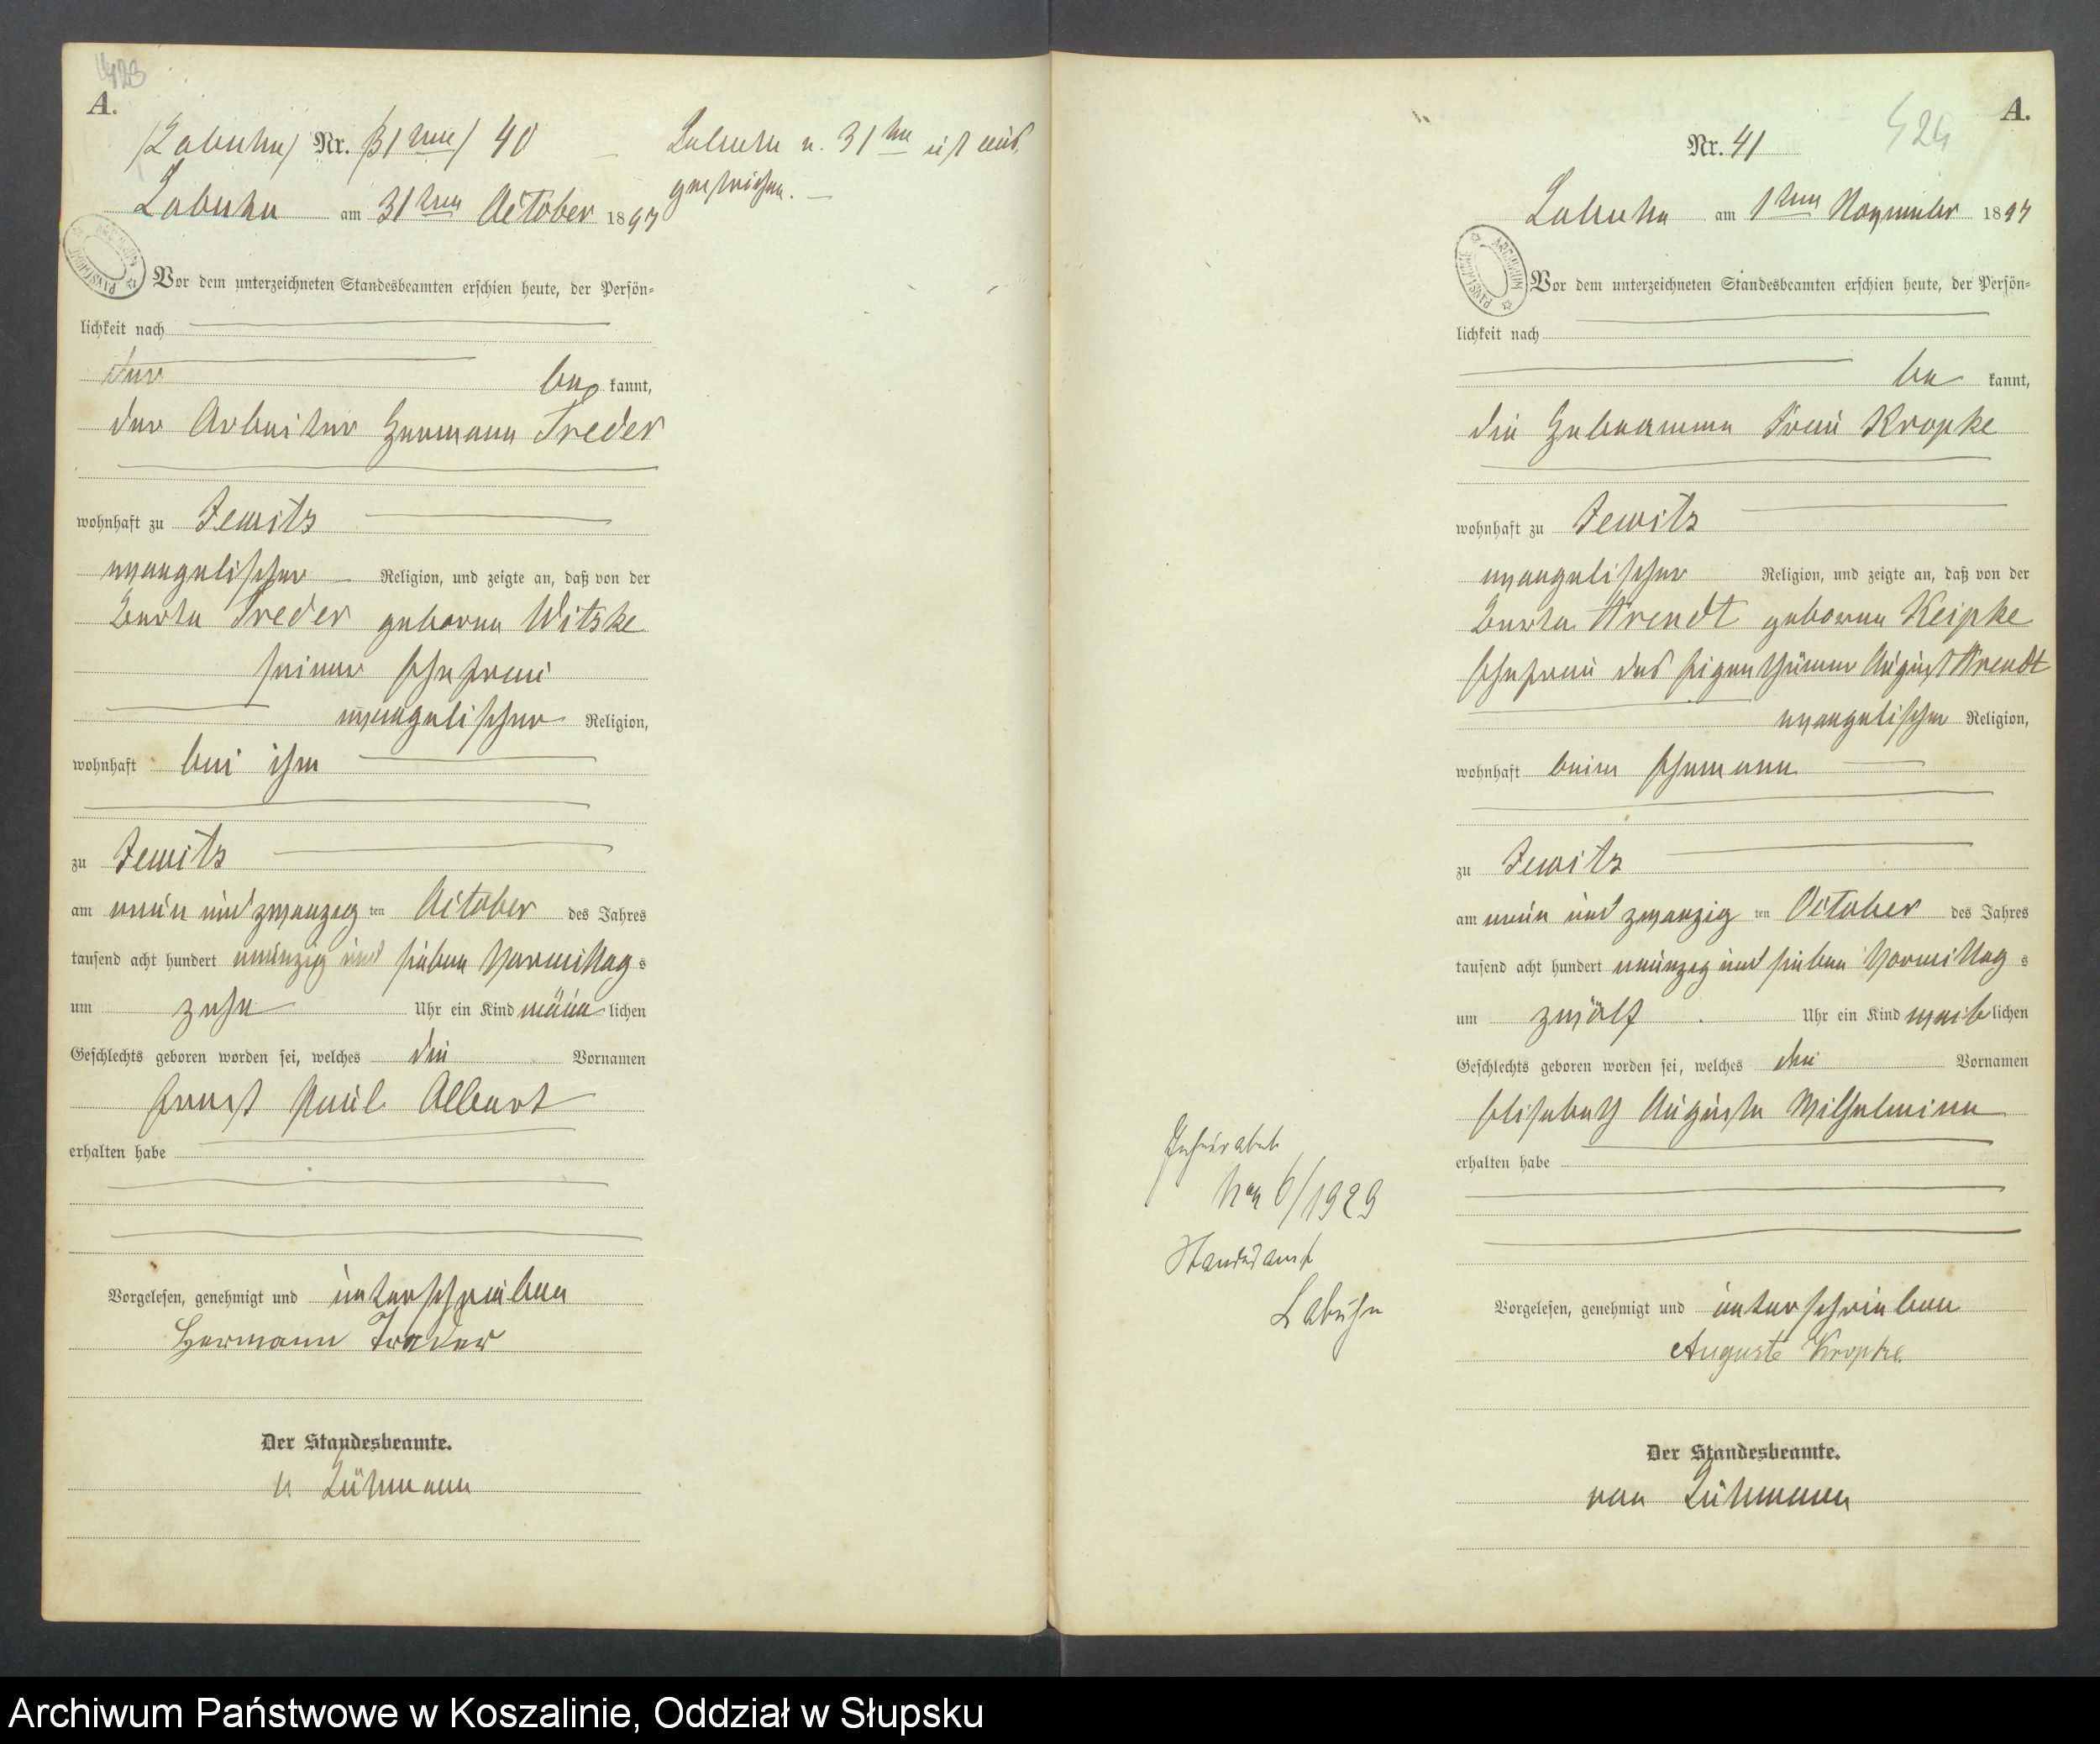 423
A.
(Labuhn) Nr. (31ten) 40
Labuhn am 31ten October 1897
Labuhn u. 31ten ist aus-
gestrichen.
Vor dem unterzeichneten Standesbeamten erschien heute, der Persön=
lichkeit nach
der bekannt,
der Arbeiter Hermann Treder
wohnhaft zu Jewitz
evangelischer Religion, und zeigte an, daß von der
Berta Treder geborne Witzke
seiner Ehefrau
evangelischer Religion,
wohnhaft bei ihm
zu Jewitz
am neun und zwanzig ten October des Jahres
tausend acht hundert neunzig und sieben Vormittags
um zehn Uhr ein Kind männlichen
Geschlechts geboren worden sei, welches die Vornamen
Ernst Paul Albert
erhalten habe
Vorgelesen, genehmigt und unterschrieben
Hermann Treder
Der Standesbeamte.
v. Lühmann
424
A.
Nr. 41
Labuhn am 1ten November 1897
ARCHIWUM PAŃSTWOWE
Vor dem unterzeichneten Standesbeamten erschien heute, der Persön=
lichkeit nach
bekannt,
die Hebeamme Frau Kropke
wohnhaft zu Jewitz
evangelischer Religion, und zeigte an, daß von der
Berta Arendt geborne Keipke
Ehefrau des Eigenthümer August Arendt
evangelischer Religion,
wohnhaft beim Ehemann
zu Jewitz
am neun und zwanzig ten October des Jahres
tausend acht hundert neunzig und sieben Vormittags
um zwölf Uhr ein Kind weiblichen
Geschlechts geboren worden sei, welches die Vornamen
Elisabeth Auguste Wilhelmine
erhalten habe
6/1929
Standesamt
Labuhn
Vorgelesen, genehmigt und unterschrieben
Auguste Kropke.
Der Standesbeamte.
von Lühmann
Archiwum Państwowe w Koszalinie, Oddział w Słupsku